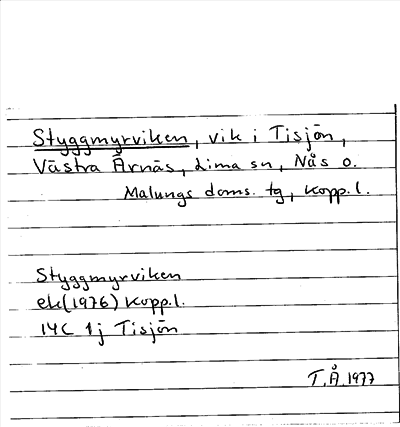 Styggmyrviken, vik i Tisjön,
Västra Årnäs, Lima sn, Nås o.
Malungs doms. tg, Kopp.l.
Styggmyrviken
ek(1976) Kopp.l.
14C 1j Tisjön
T.Å. 1977